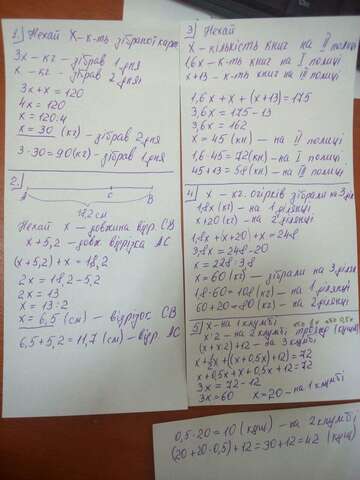 1) Нехай х-к-ть зібраної карт
3х - кг - зібрав 1 дня
х - кг - зібрав 2 дня
3х + х = 120
4х = 120
х = 120:4
х = 30 (кг) - зібрав 2 дня
3·30 = 90(кг) - зібрав 1 дня
2.
А С В
18,2 см
Нехай х - довжина відр. СВ
х + 5,2 - довж відрізка АС
(х + 5,2) + х = 18,2
2х = 18,2 - 5,2
2х = 13
х = 13:2
х = 6,5 (см) - відрізок СВ
6,5 + 5,2 = 11,7 (см) - відр. АС
3) Нехай
х - кількість книг на ІІ полиці
1,6х - к-ть книг на І полиці
х + 13 - к-ть книг на ІІІ полиці
1,6х + х + (х + 13) = 175
3,6х = 175 - 13
3,6х = 162
х = 45 (кн) - на ІІ полиці
1,6·45 = 72(кн) - на І полиці
45 + 13 = 58(кн) - на ІІІ полиці
4) х - кг. огірків зібрали на 3 діл
1,8х (кг) - на 1 ділянці
х + 20 (кг) - на 2 ділянці
1,8х + (х + 20) + х = 248
3,8х = 248 - 20
х = 228:3,8
х = 60 (кг) - зібрали на 3 діля
1,8·60 = 108 (кг) - на 1 ділянці
60 + 20 = 80 (кг) - на 2 ділянці
5) х - на 1 клумбі
х:2 - на 2 клумбі троянд (кущів)
(х + х:2) + 12 - на 3 клумбі
х + 0,5х + х + 0,5х + 12 = 72
3х = 72 - 12
3х = 60 х = 20 - на 1 клумбі
0,5·20 = 10 (кущ) - на 2 клумбі
(20 + 20·0,5) + 12 = 30 + 12 = 42 (кущ)